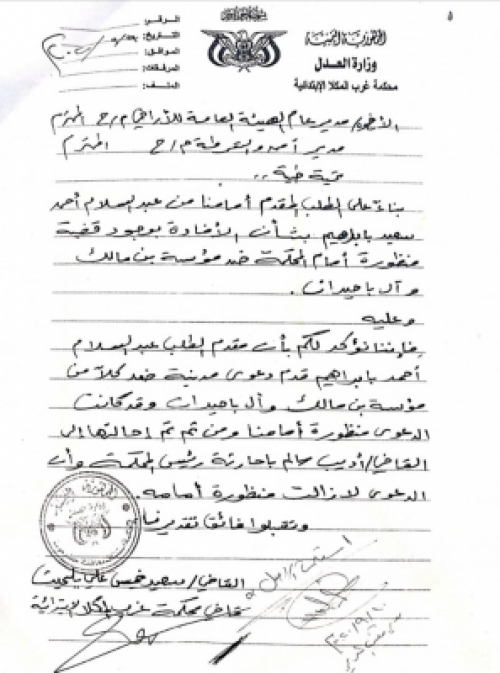 ٥
الجمهورية اليمنية
وزارة العدل
محكمة غرب المكلا الإبتدائية
الرقم:
التاريخ:
الموافق:
المرفقات:
الملف:
الأخوة/ مدير عام الهيئة العامة للأراضي م/ح المحترم
مدير أمن والشرطة م/ح المحترم
تحية طيبة ،،
بناءً على الطلب المقدم أمامنا من عبدالسلام أحمد
سعيد بابراهيم بشأن الأفادة بوجود قضية
منظورة أمام المحكمة ضد مؤسسة بن مالك
و آل باحيدان .
وعليه
فإننا نؤكد لكم بأن مقدم الطلب عبدالسلام
أحمد بابراهيم قدم دعوى مدنية ضد كلاً من
مؤسسة بن مالك وآل باحيدان وقد كانت
الدعوى منظورة أمامنا ومن ثم تم إحالتها إلى
القاضي/ أديب سالم باحارثة رئيس المحكمة وأن
الدعوى لازالت منظورة أمامه.
وتقبلوا فائق تقديرنا
القاضي/ سعيد خميس علي
قاضي محكمة غرب المكلا الإبتدائية